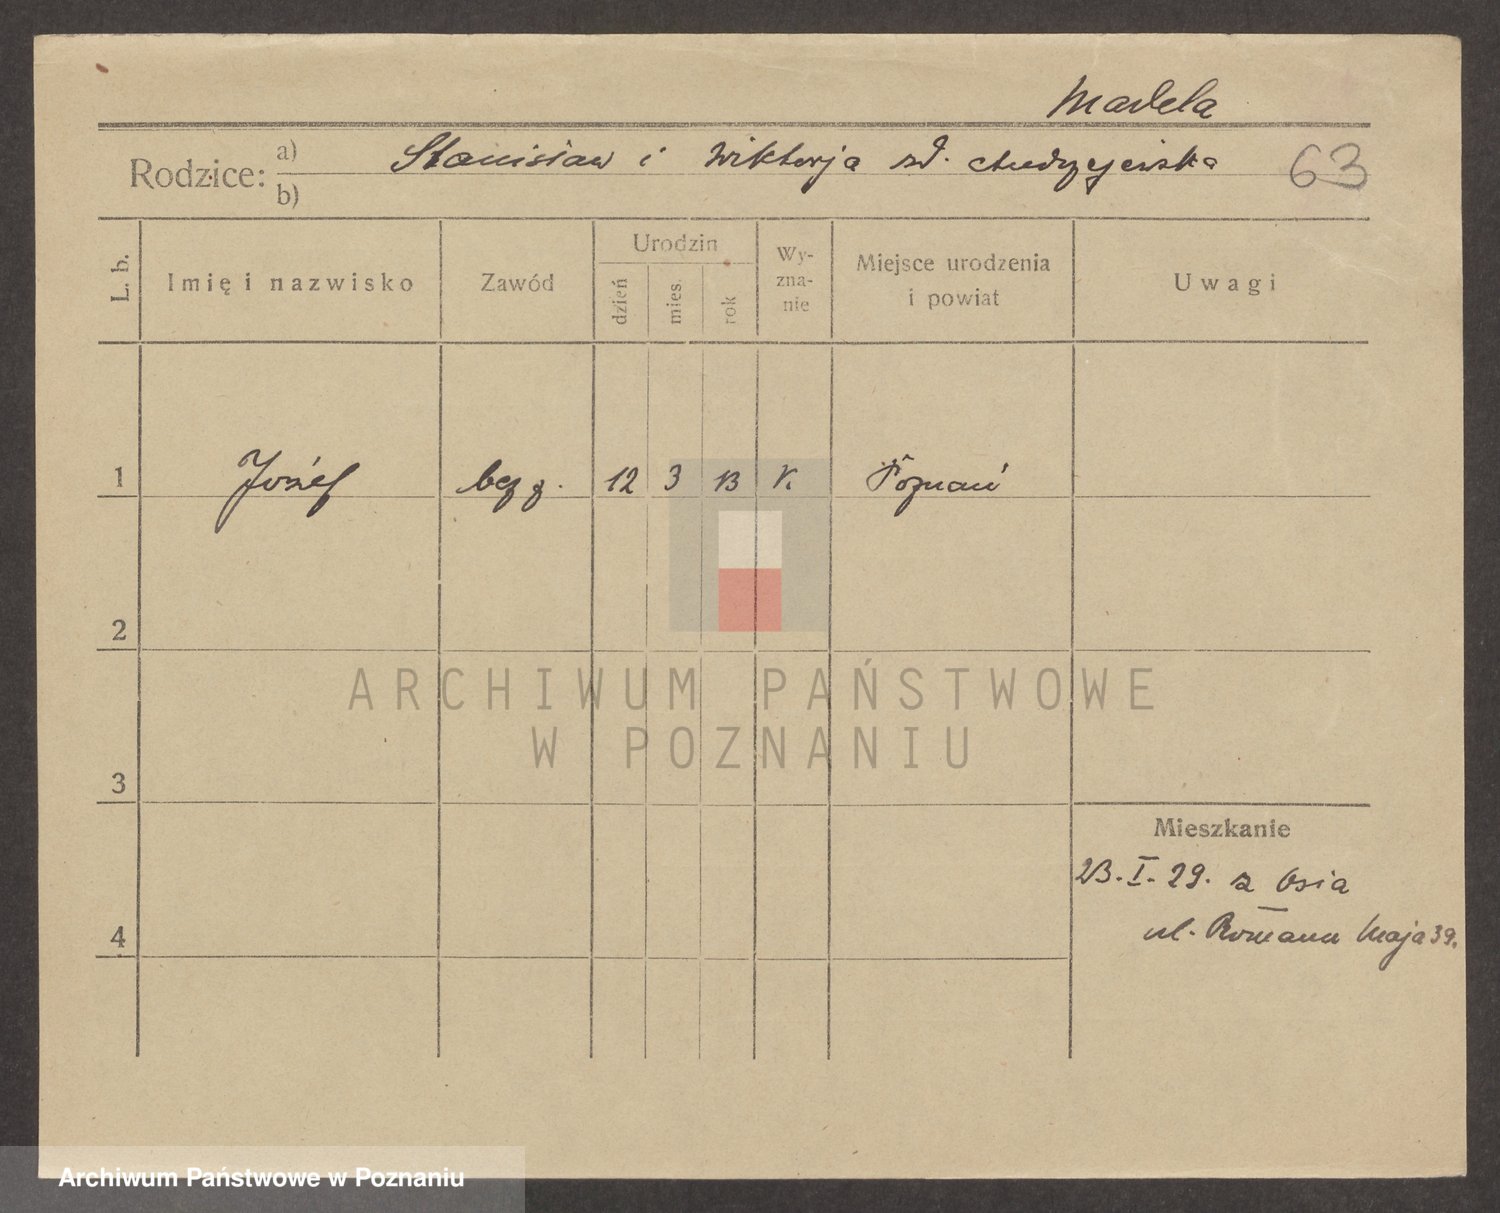 Madela
Rodzice: a) Stanisław i Wiktorja zd.
b)
63
L. b.
Imię i nazwisko
Zawód
Urodzin
dzień
mies.
rok
Wy-
zna-
nie
Miejsce urodzenia
i powiat
Uwagi
1 Józef bez z. 12 3 13 K. Poznań
2
3
4
Mieszkanie
23.I.29. z Osia
ul. Romana Maja 39.
ARCHIWUM PAŃSTWOWE
W POZNANIU
Archiwum Państwowe w Poznaniu